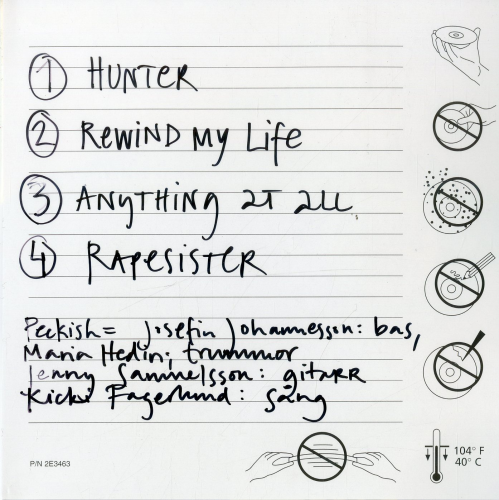 1 HUNTER
2 REWIND MY Life
3 ANYTHING AT ALL
4 RAPESISTER
Peckish = Josefin Johannesson: bas,
Maria Hedin: trummor
Jenny Sammelsson: gitarr
Kicki Fagerlund: sång
P/N 2E3463
104° F
40° C